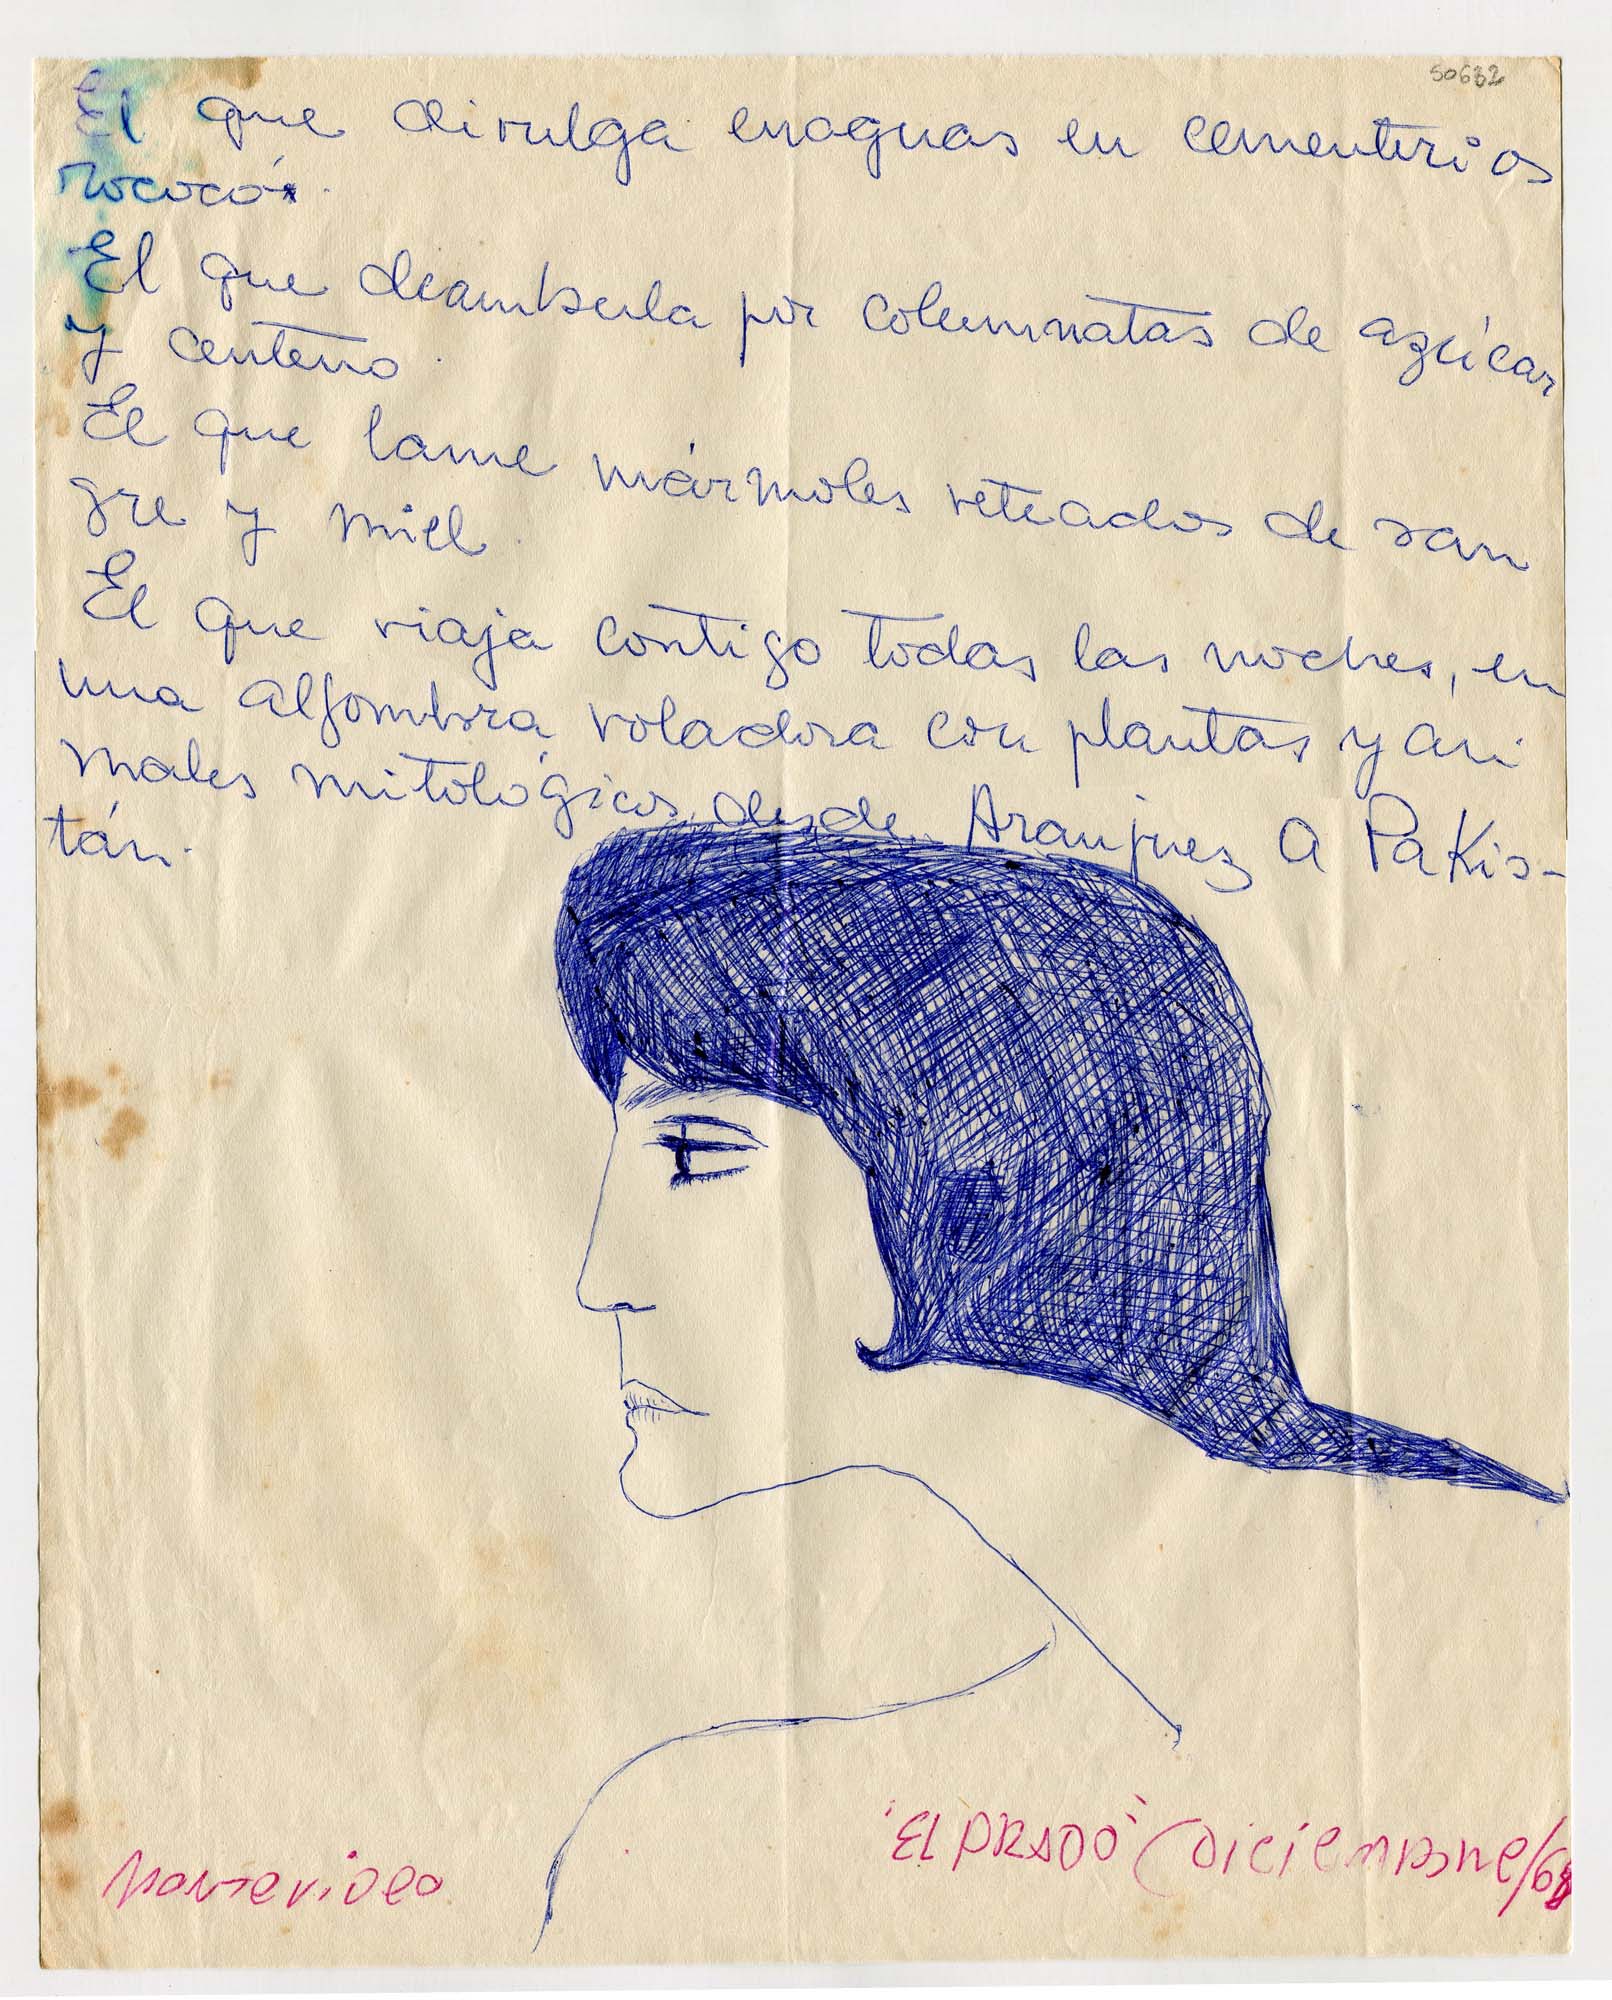 50632
El que divulga enaguas en cementerios
rococós.
El que deambula por columnatas de azúcar
y centeno.
El que lame mármoles veteados de san
gre y miel.
El que viaja contigo todas las noches, en
una alfombra voladora con plantas y ani
males mitológicos desde Aranjuez a Pakis-
tán.
"EL PRADO" (Diciembre/68
Montevideo